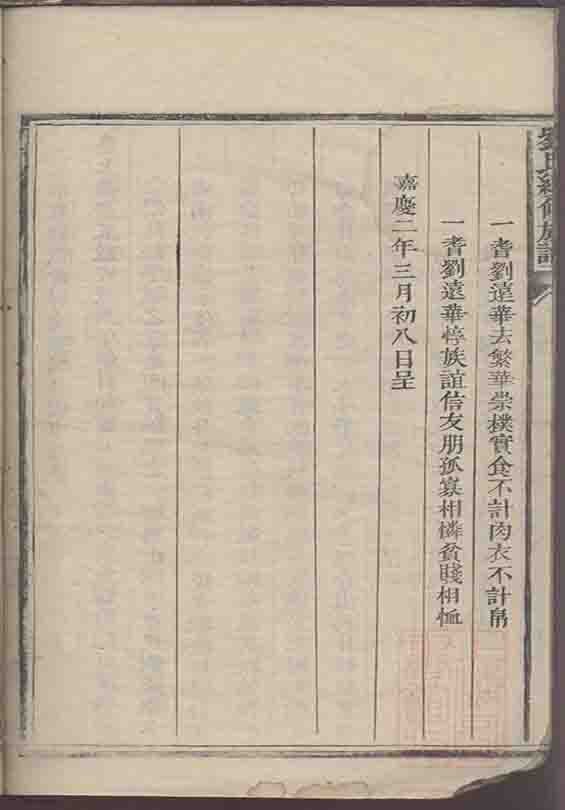 劉氏續修族譜
一耆劉遠華去繁華崇樸實食不計肉衣不計帛
一耆劉遠華惇族誼信友朋孤寡相憐貧賤相恤
嘉慶二年三月初八日呈